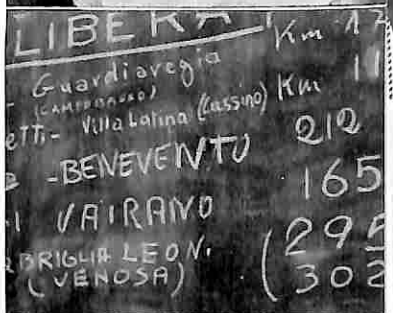 LIBERA Km 17
- Guardiaregia 11
(CAMPOBASSO)
etti - Villa Latina (Cassino) Km
- BENEVENTO 212
VAIRANO 165
BRIGLIA LEON. (295
(VENOSA) 302